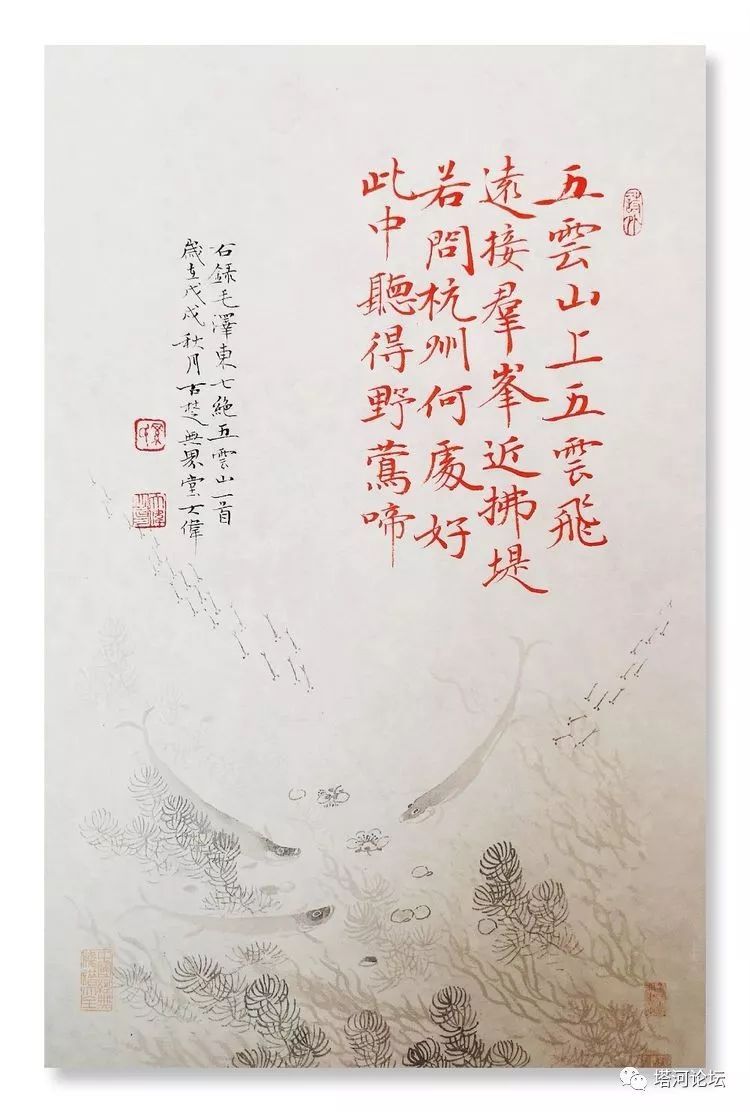 五雲山上五雲飛
遠接羣峯近拂堤
若問杭州何處好
此中聽得野鶯啼
右錄毛澤東七絕五雲山一首
歲在戊戌秋月古楚無界堂大偉
塔河论坛